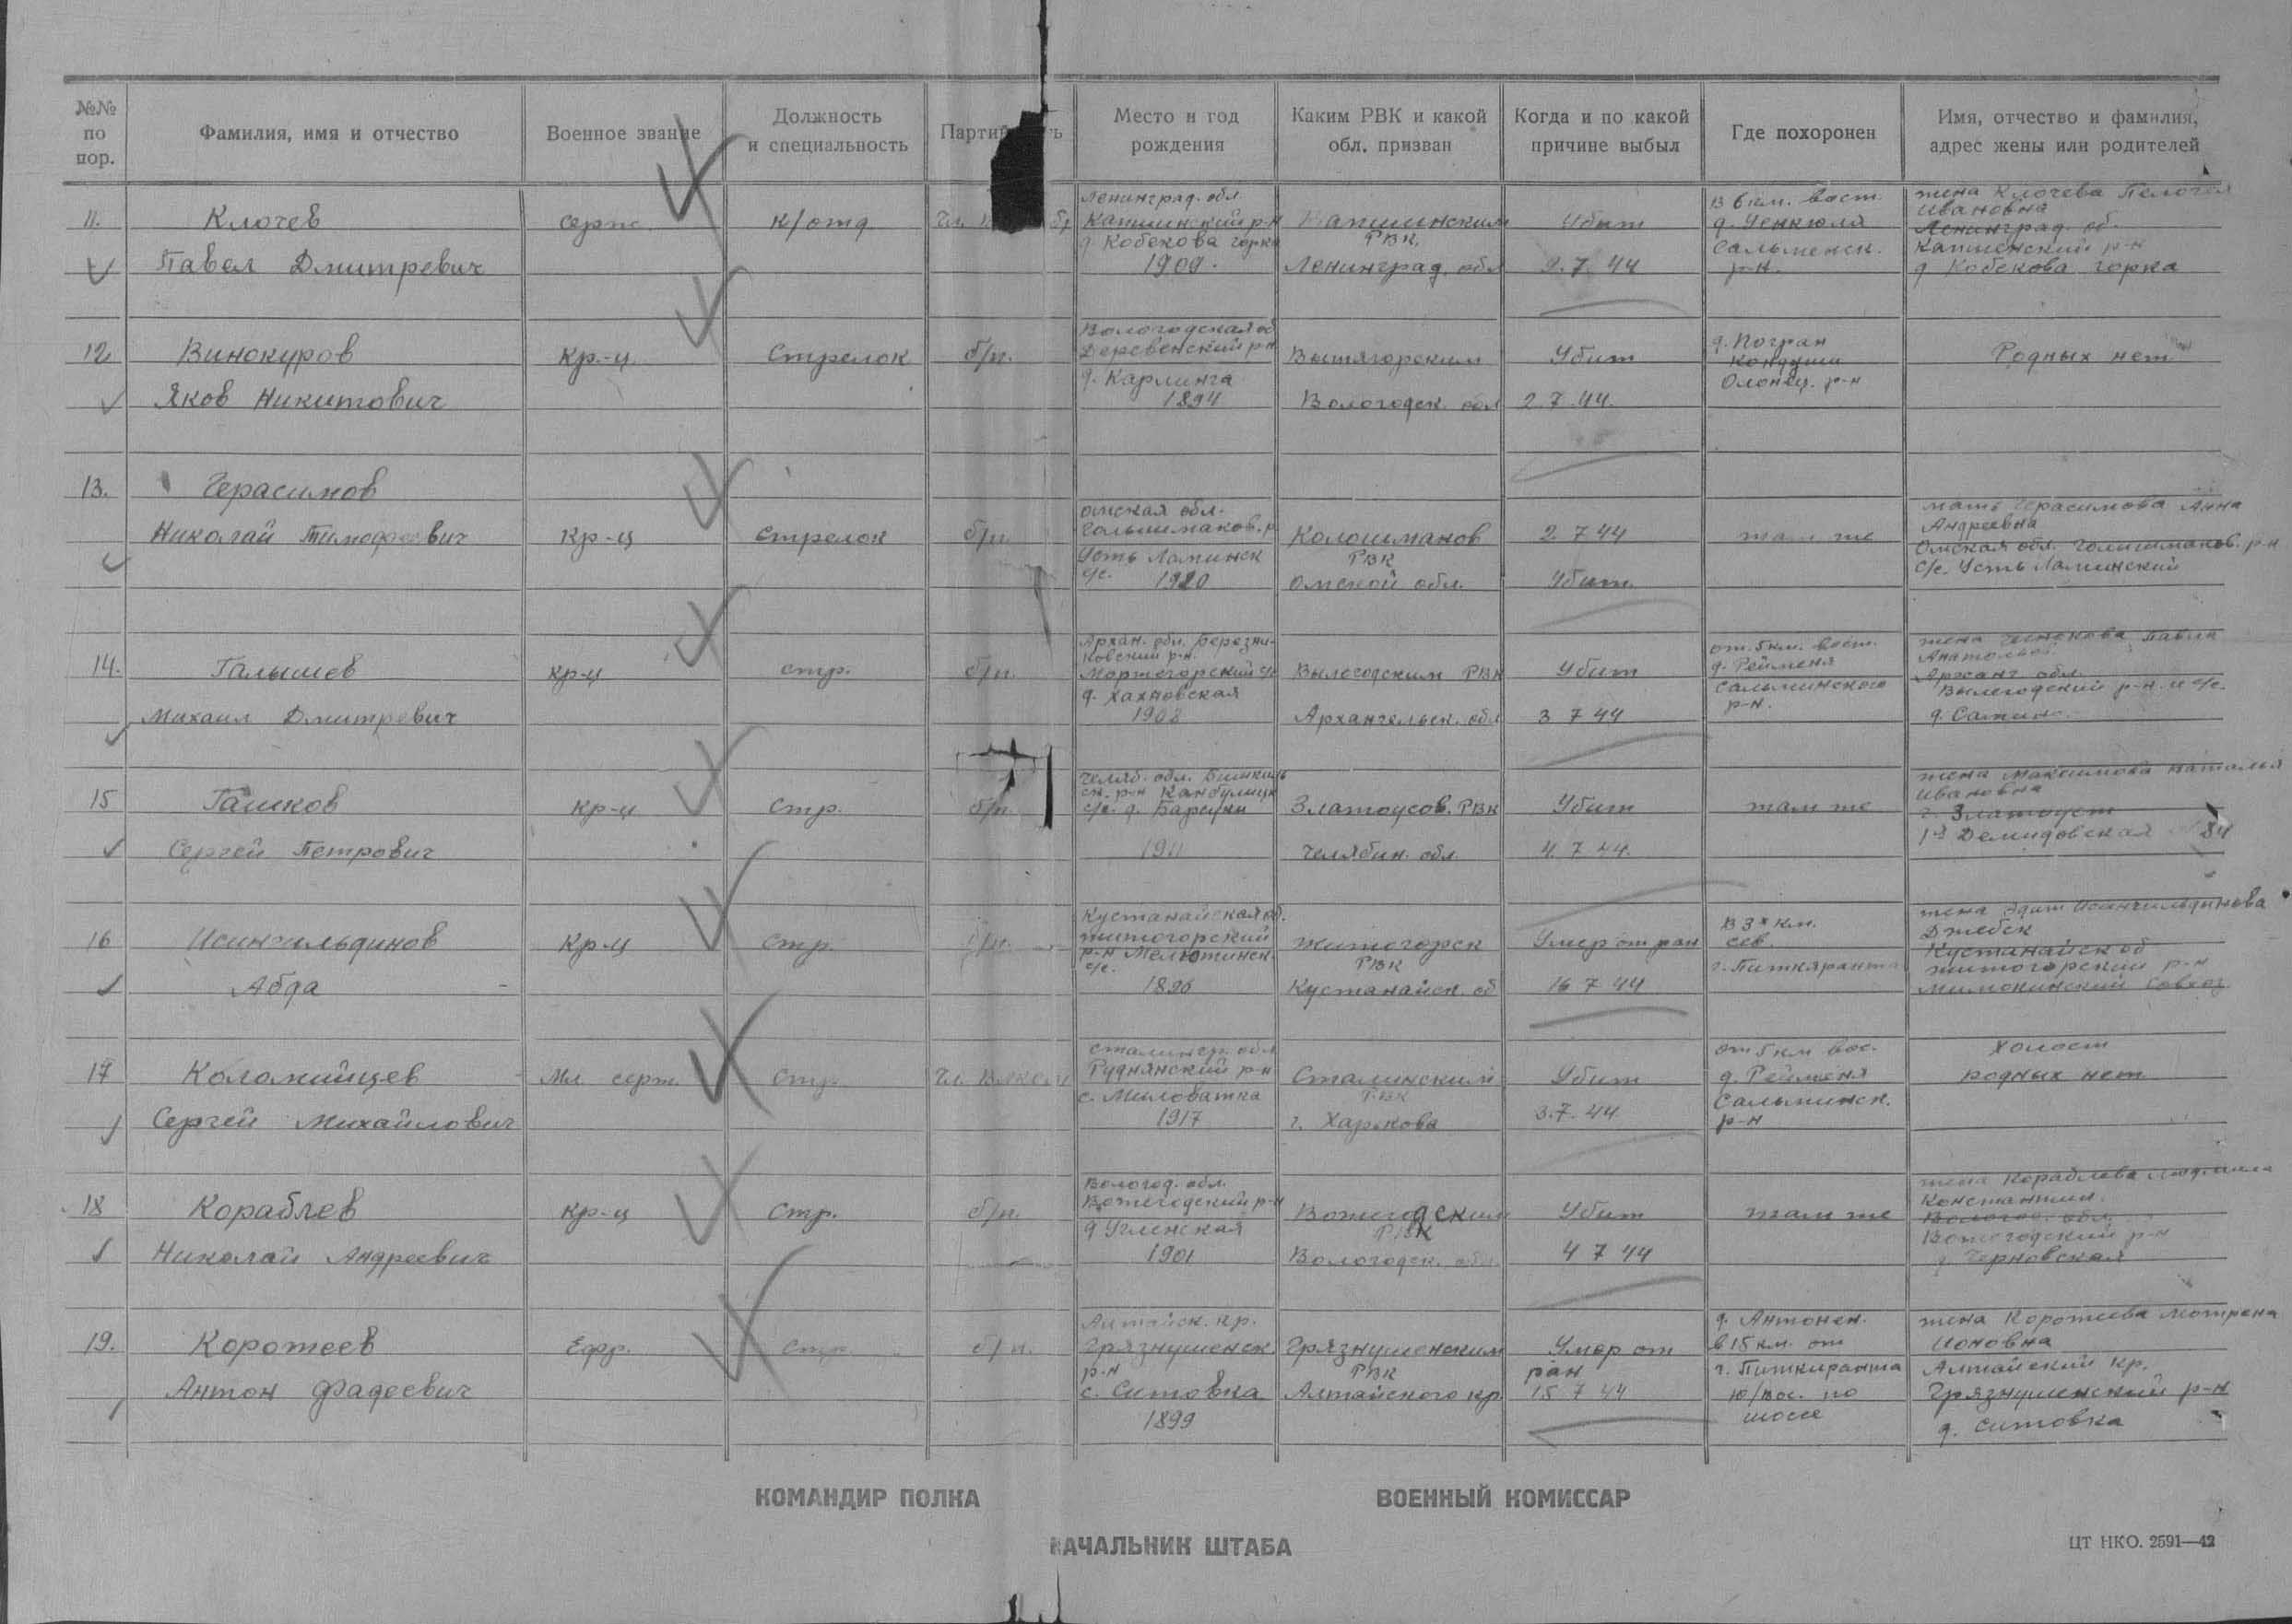 №№ по пор.
Фамилия, имя и отчество
Военное звание
Должность и специальность
Место и год рождения
Каким РВК и какой обл. призван
Когда и по какой причине выбыл
Где похоронен
Имя, отчество и фамилия, адрес жены или родителей
11. Клочев
Павел Дмитревич
серж.
к/отд
Ленинград. обл
Капшинский р-н
д Кобекова горка
1909.
Капшинским
РВК,
Ленинград. обл
Убит
2. 7. 44
В 6 км. вост.
д.
Сальменск.
р-н.
жена Клочева
Ивановна
Ленинград. об.
Капшенский р-н
д Кобекова горка
12 Винокуров
Яков Никитович
Кр.-ц
Стрелок
б/п.
Вологодская об
р-н
д. Карлинга
1894
Вытягорским
Вологодск. обл
Убит
2 7. 44.
д. Погран
Кондуши
Олонец. р-н
Родных нет
13. Герасимов
Николай Тимофеевич
Кр-ц
стрелок
б/п.
Омская обл.
Гольшмаков. р
Усть Ламинск
с/с. 1920
Колошманов
РВК
Омской обл.
2. 7 44
Убит.
там же
мать Герасимова Анна
Андреевна
Омская обл. р-н
с/с. Усть Ламинский
14. Галышев
Михаил Дмитревич
Кр-ц
стр.
б/п.
Архан. обл. Березни-
ковский р-н.
Моржегорский с/с
д.
1908
Вылегодским РВК
Архангельск. обл
Убит
3 7 44
от. 5 км. вост.
д. Рейменя
Сальминского
р-н.
жена Павла
Арханг обл.
Вылегодский р-н. и с/с.
15 Гашков
Сергей Петрович
Кр-ц
Стр.
б/п.
Челяб. обл.
ск. р-н
с/с. д. Барсуки
1911
Златоусов. РВК
Челябин. обл
Убит
4. 7 44.
там же
жена Максимова Наталья
Ивановна
г. Златоуст
1я Демидовская 84
16 Исингильдинов
Абда
Кр-ц
Стр.
Кустанайская об.
житогорский
р-н
с/с.
1896
житогорск
РВК
Кустанайск. об
Умер от ран
16 7 44
В 3х км.
сев.
г. Питкяранта
жена
Джебек
Кустанайск об
житогорский р-н
Совхоз
17 Коломийцев
Сергей Михайлович
Мл. серж.
Стр.
Сталингр. обл
Руднянский р-н
с. Миловатка
1917
Сталинским
РВК
г. Харькова
Убит
3. 7. 44
от 5 км вос.
д. Рейменя
Сальминск.
р-н
холост
родных нет
18 Кораблев
Николай Андреевич
Кр-ц
Стр.
б/п.
Вологод. обл.
Вожегодский р-н
д Угленская
1901
Вожегодским
РВК
Вологодск. обл
Убит
4 7 44
там же
жена Кораблева Людмила
Константин.
Вологод. обл.
Вожегодский р-н
д Черновская
19. Коротеев
Антон Фадеевич
Ефр.
Стр.
б/п.
Алтайск. кр.
Грязнушенск
р-н
с. Ситовка
1899
Грязнушенским
РВК
Алтайского кр.
Умер от
ран
15 7 44
д. Антонен.
в 15 км. от
г. Питкиранта
ю/вос. по
шоссе
жена Коротеева Мотрена
Ионовна
Алтайский кр.
Грязнушенский р-н
д. Ситовка
КОМАНДИР ПОЛКА
ВОЕННЫЙ КОМИССАР
НАЧАЛЬНИК ШТАБА
ЦТ НКО. 2591—42